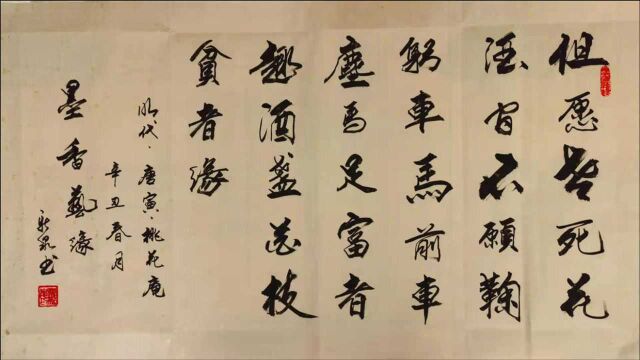 但愿老死花
酒间不愿鞠
躬车马前车
尘马足富者
趣酒盏花枝
贫者缘
明代·唐寅桃花庵
辛丑春月
墨香艺缘
泉书